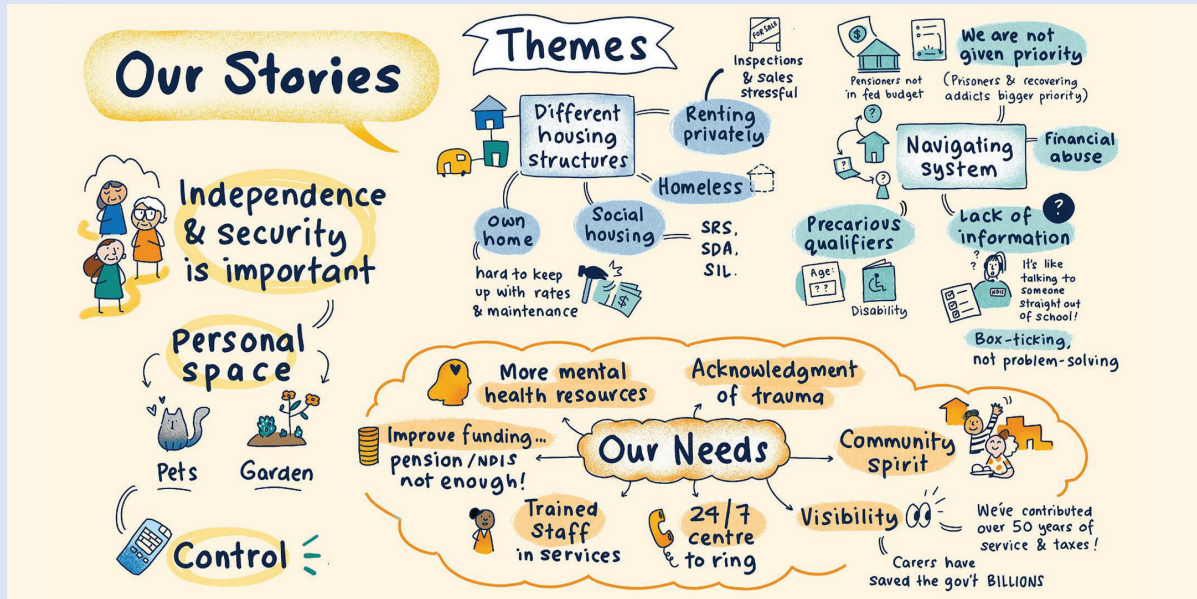 Our Stories
Independence
& security
is important
Personal
space
Pets
Garden
Control
Themes
Different
housing
structures
FOR SALE
Inspections
& sales
stressful
Renting
privately
Homeless
Own
home
hard to keep
up with rates
& maintenance
Social
housing
SRS,
SDA,
SIL.
$
$
Pensioners not
in fed budget
We are not
given priority
(Prisoners & recovering
addicts bigger priority)
?
?
?
Navigating
system
Financial
abuse
Precarious
qualifiers
Age:
??
Disability
Lack of
information
?
?
?
NDIS
It's like
talking to
someone
straight out
of school!
Box-ticking,
not problem-solving
Our Needs
More mental
health resources
Acknowledgment
of trauma
Improve funding...
pension/NDIS
not enough!
Community
spirit
Trained
Staff
in services
24/7
centre
to ring
Visibility
We've contributed
over 50 years of
service & taxes!
Carers have
saved the gov't BILLIONS